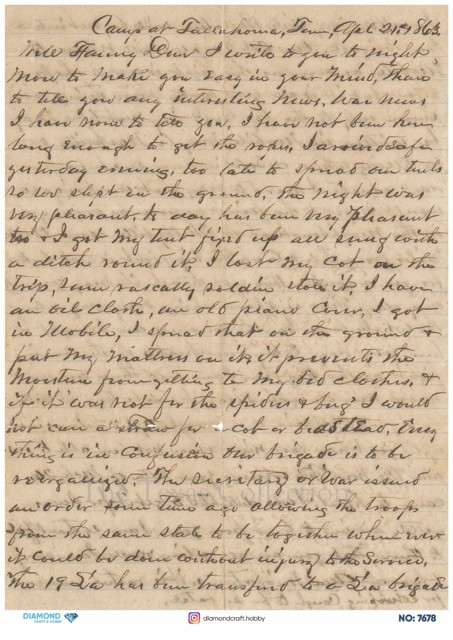 Camp at Tullahoma, Tenn, Apl 21st 1863.
Well Fanny Dear I write to you to night
more to make you easy in your mind, than
to tell you any interesting news, War news
I have none to tell you, I have not been here
long enough to get the ropes, I arrived safe
yesterday evening, too late to spread our tents
so we slept on the ground, the night was
very pleasant, to day has been very pleasant
too & I got my tent fixed up all snug with
a ditch round it, I lost my cot on the
trip, some rascally soldier stole it, I have
an oil cloth, an old piano cover, I got
in Mobile, I spread that on the ground &
put my mattress on it, it prevents the
moisture from getting to my bed clothes, &
if it was not for the spiders & bugs I would
not care a straw for a cot or bedstead, Every
thing is in confusion Our brigade is to be
reorganized, The Secretary of War issued
an order some time ago allowing the troops
from the same state to be together when ever
it could be done without injury to the service,
The 19 La has been transferd to a La brigade
DIAMOND
CRAFT & HOBBY
diamondcraft.hobby
NO: 7678